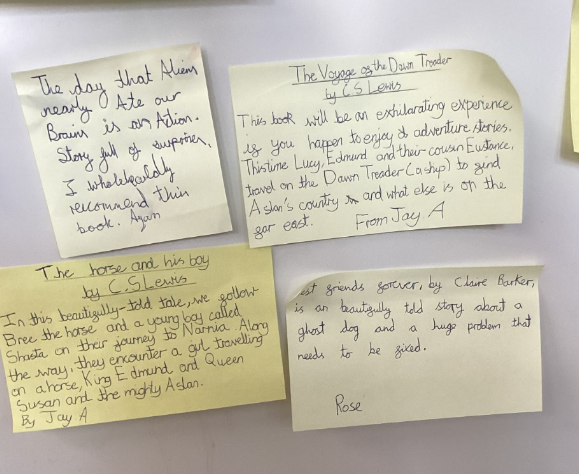 The day that Aliens
nearly Ate our
Brains is an Action.
Story full of surprises,
I wholehearidly
recommend this
book. Ayan
The Voyage of the Dawn Treader
by C.S Lewis
This book will be an exhilarating experience
if you happen to enjoy adventure stories.
This time Lucy, Edmund and their cousin Eustance,
travel on the Dawn Treader (a ship) to find
Aslan's country and what else is on the
far east. From Jay. A
The horse and his boy
by C.S Lewis
In this beautifully-told tale, we follow
Bree the horse and a young boy called
Shasta on their journey to Narnia. Along
the way, they encounter a girl travelling
on a horse, King Edmund and Queen
Susan and the mighty Aslan.
By Jay A
est friends forever, by Claire Barker,
is an beautifully told story about a
ghost dog and a huge problem that
needs to be fixed.
Rose